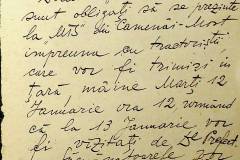 sunt obligați să se prezinte
la "M13" din Camenai-Most
împreuna cu tractoriștii
care vor fi trimiși în
țară, mâine Marți 12
Ianuarie ora 12 urmând
că la 13 Ianuarie vor
fi vizitați de Dl Prefect